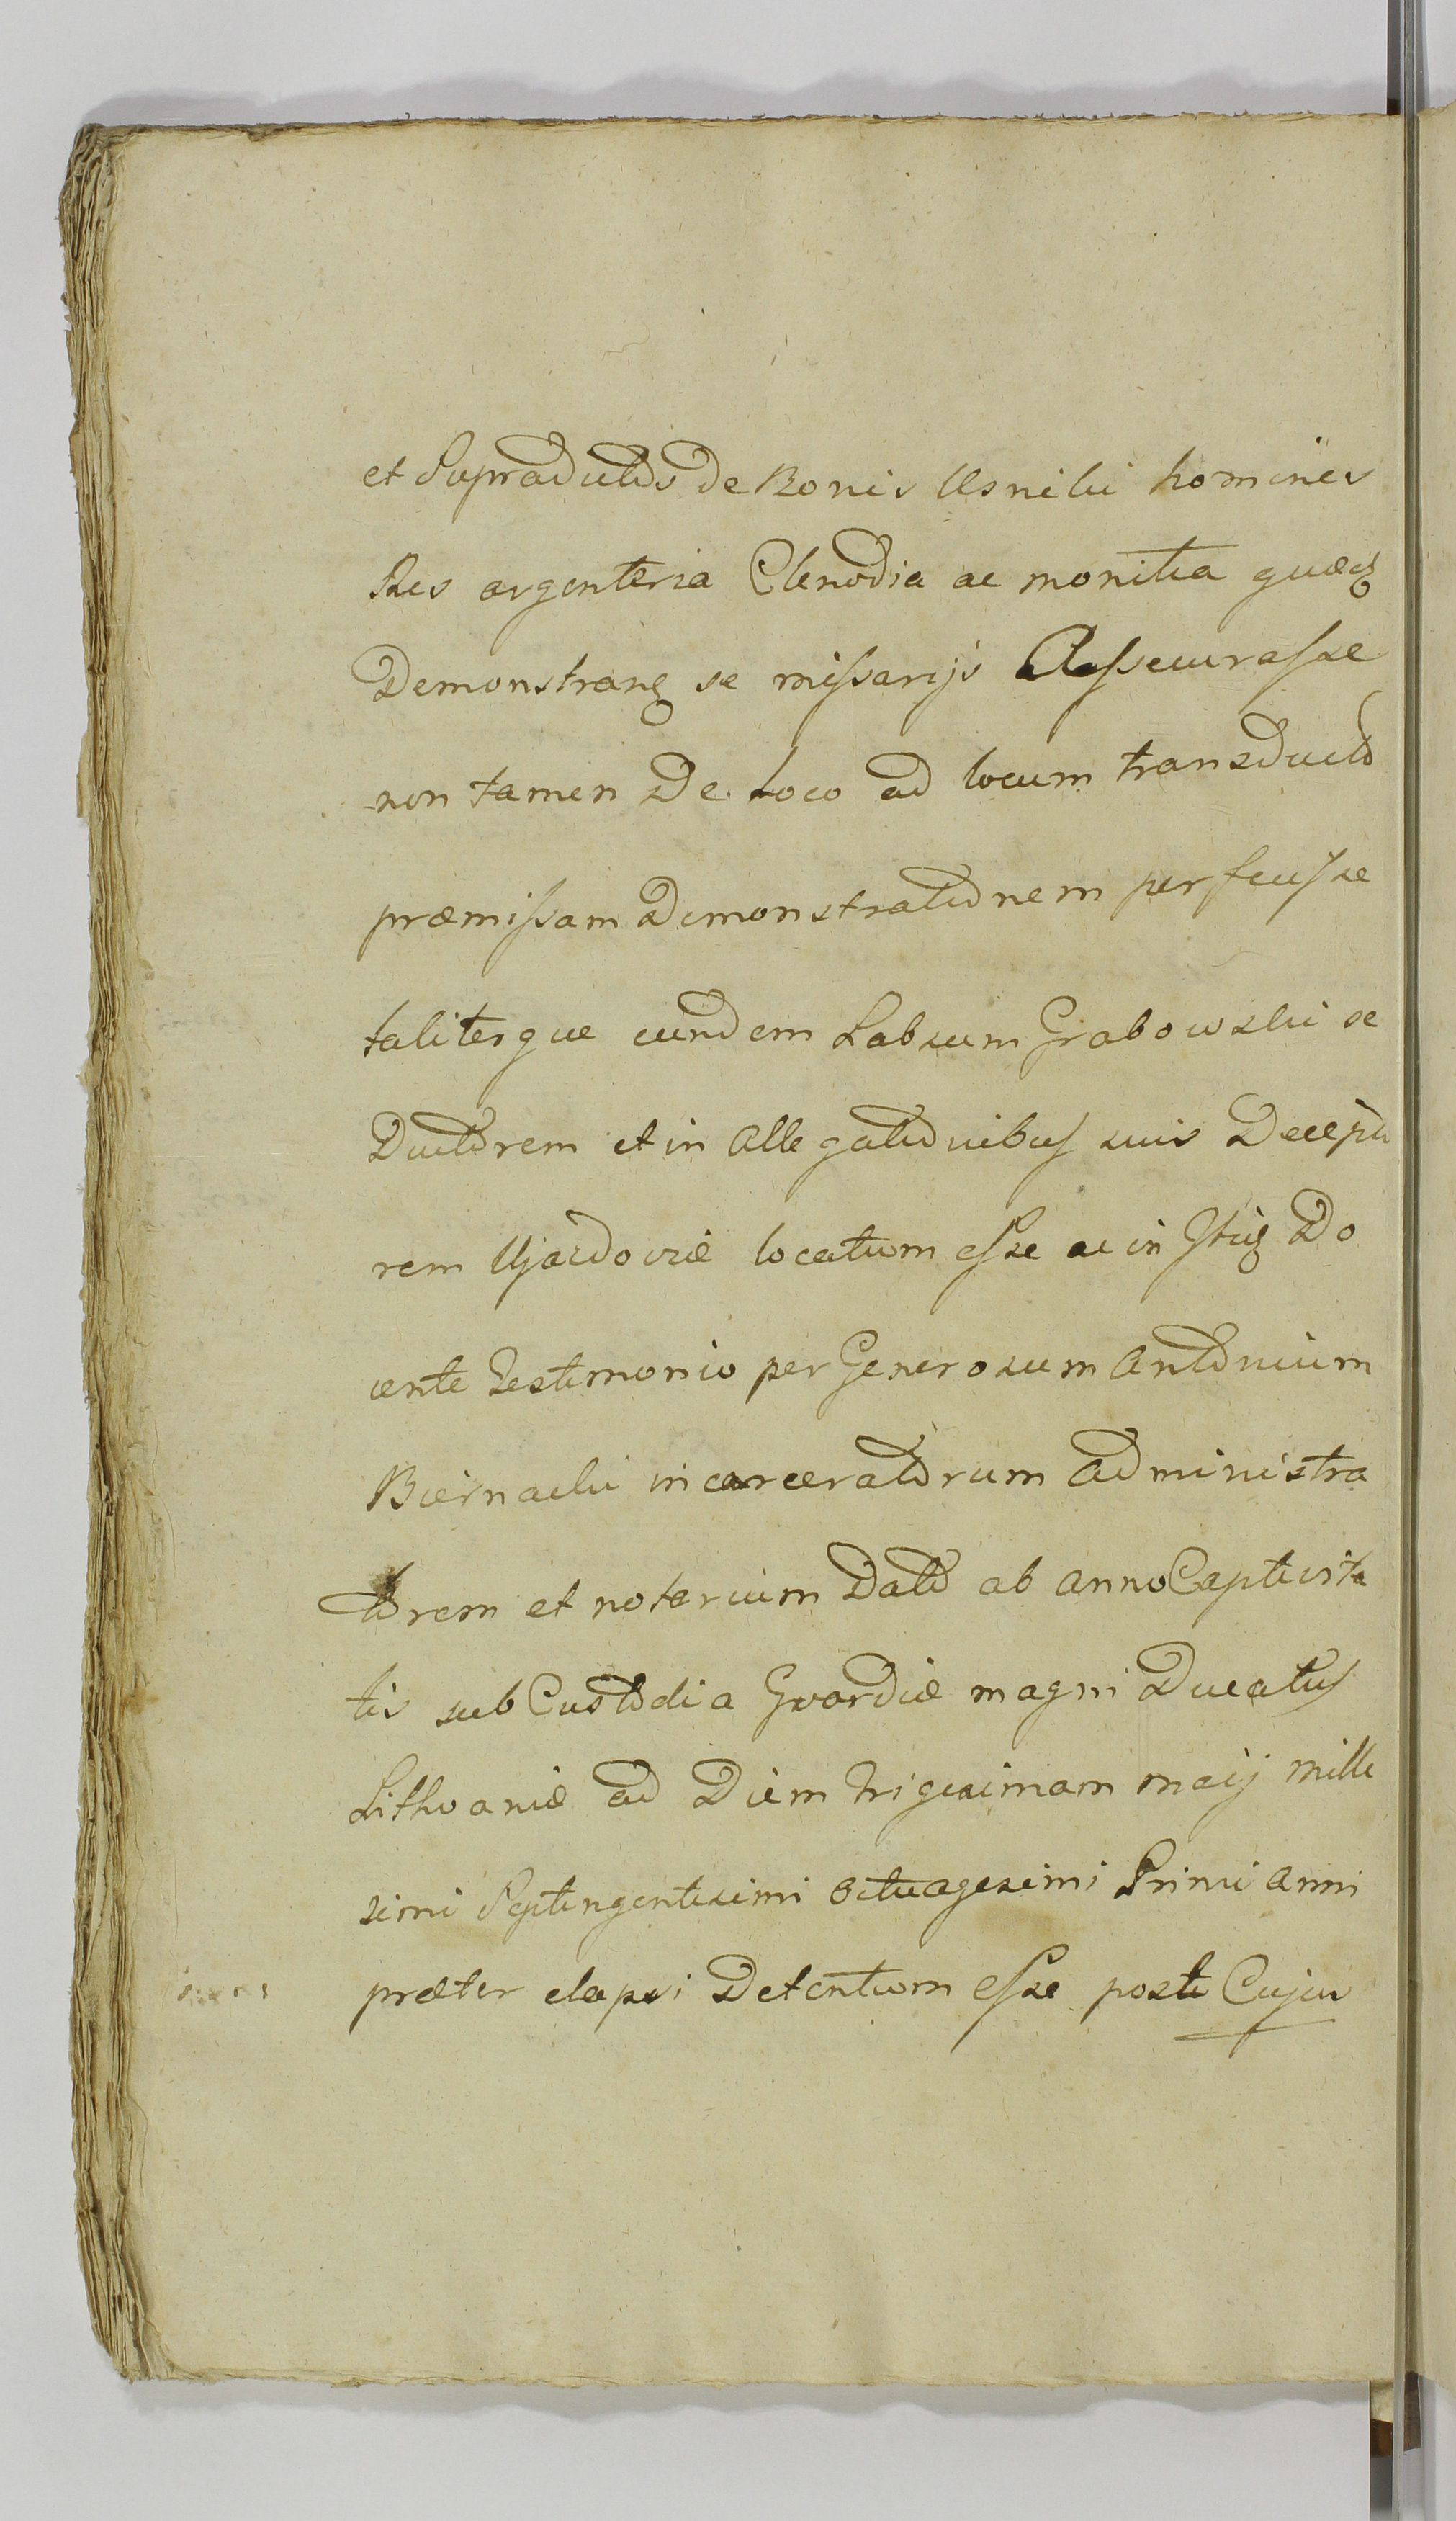 et Supraductos de Bonis Usnicki homines
Res argenteria Clenodia ac monilia quæq
Demonstranq se missarijs Assecurasse
non tamen De Loco ad locum transducto
præmissam Demonstrationem perfecisse
taliterque eundem Labsum Grabowski se
Ductorem et in Allegationibus suis Decepto
rem Ujazdoviæ locatum esse ac in Do
cente Testimonio per Generosum Antonium
Biernacki incarceratorum Administra
torem et notarium Dato ab anno Captivita
tis sub Custodia Gvardiæ magni Ducatus
Lithvaniæ ad Diem trigesimam maij mille
simi Septingentesimi octuagesimi Primi anni
præter elapsi Detentum esse post Cujus